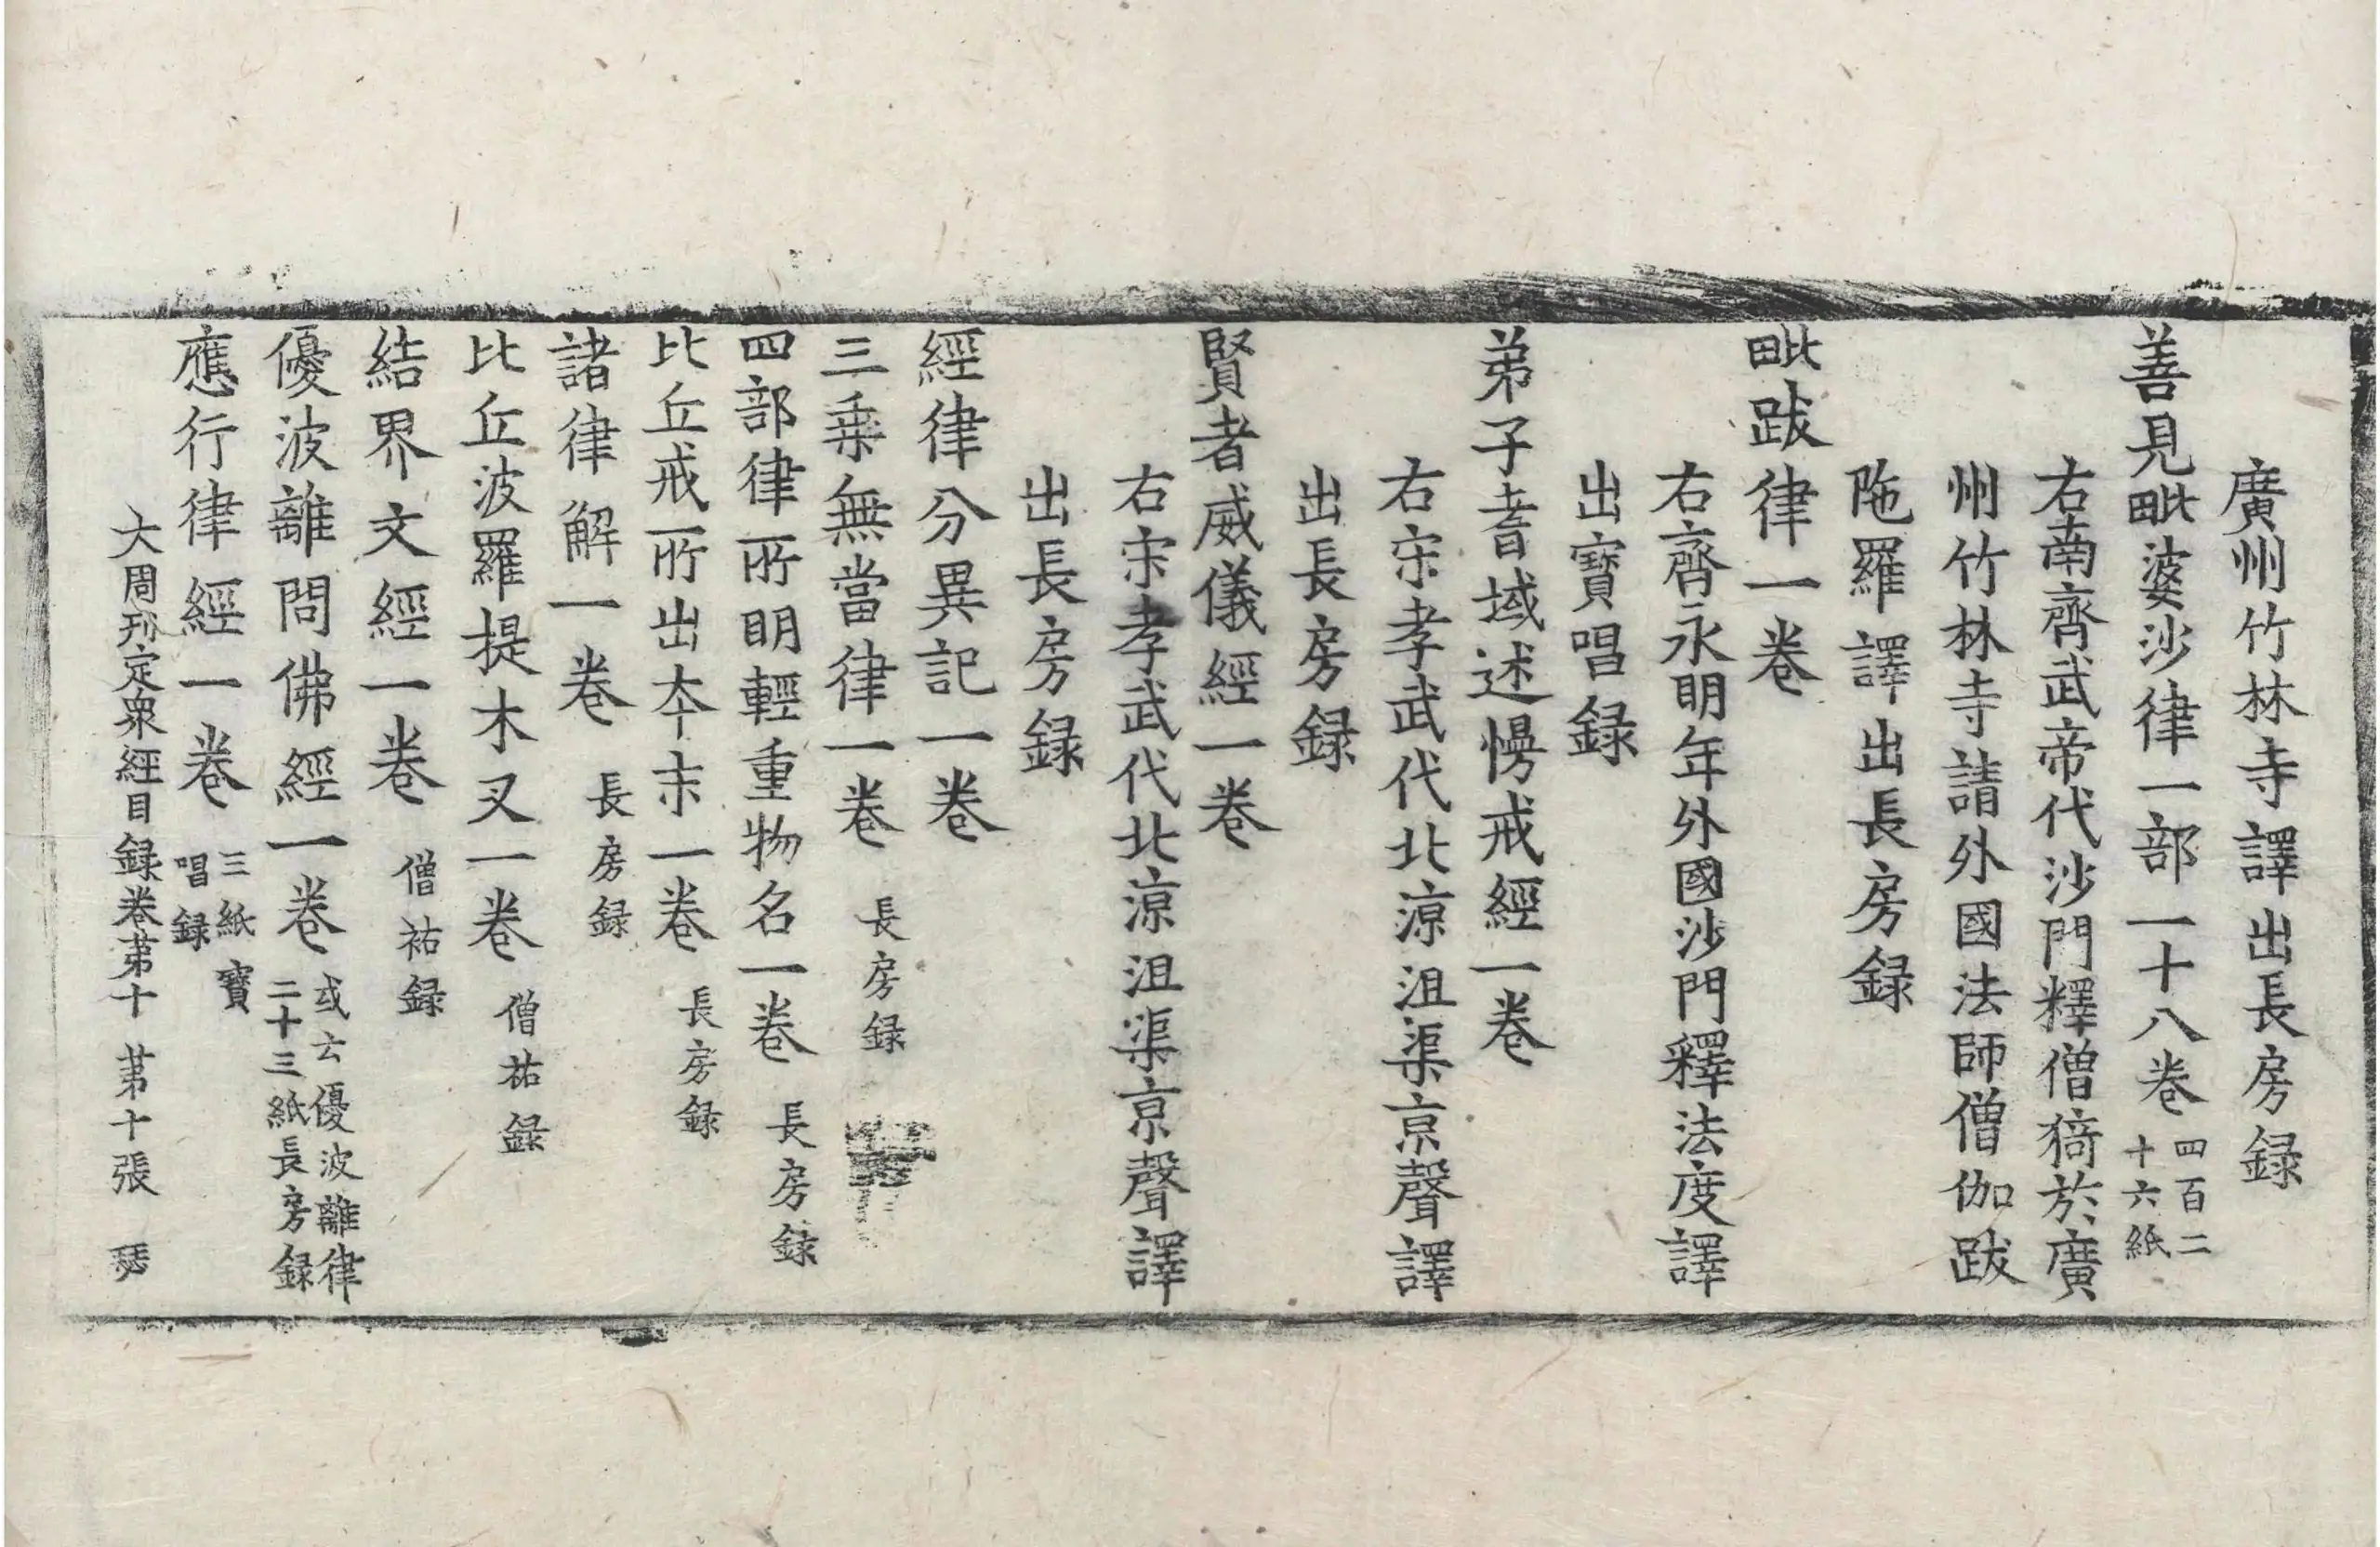 廣州竹林寺譯出長房録
善見毗婆沙律一部一十八卷 四百二十六紙
右南齊武帝代沙門釋僧猗於廣
州竹林寺請外國法師僧伽跋
陁羅譯出長房録
毗跋律一卷
右齊永明年外國沙門釋法度譯
出寶唱録
弟子耆域述慢戒經一卷
右宋孝武代北涼沮渠京聲譯
出長房録
賢者威儀經一卷
右宋孝武代北涼沮渠京聲譯
出長房録
經律分異記一卷
三乗無當律一卷 長房録
四部律所明輕重物名一卷 長房録
比丘戒所出夲末一卷 長房録
諸律解一卷 長房録
比丘波羅提木叉一卷 僧祐録
結界文經一卷 僧祐録
優波離問佛經一卷 或云優波離律二十三紙長房録
應行律經一卷 三紙寶唱録
大周刊定衆經目録卷苐十 苐十張 瑟